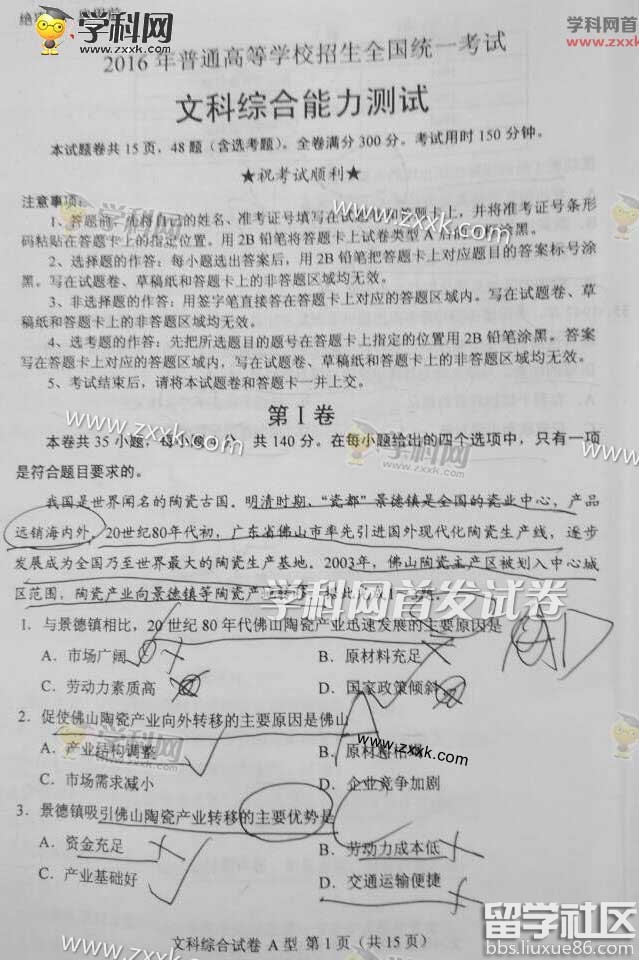 绝密
学科网
www.zxxk.com
学科网
www.zxxk
2016年普通高等学校招生全国统一考试
文科综合能力测试
本试题卷共15页，48题（含选考题）。全卷满分300分。考试用时150分钟。
★祝考试顺利★
注意事项：
学科网
www.zxxk.com
1、答题前，先将自己的姓名、准考证号填写在试题卷和答题卡上，并将准考证号条形
码粘贴在答题卡上的指定位置。用2B铅笔将答题卡上试卷类型A后的方框涂黑。
2、选择题的作答：每小题选出答案后，用2B铅笔把答题卡上对应题目的答案标号涂
黑。写在试题卷、草稿纸和答题卡上的非答题区域均无效。
3、非选择题的作答：用签字笔直接答在答题卡上对应的答题区域内。写在试题卷、草
稿纸和答题卡上的非答题区域均无效。
4、选考题的作答：先把所选题目的题号在答题卡上指定的位置用2B铅笔涂黑。答案
写在答题卡上对应的答题区域内，写在试题卷、草稿纸和答题卡上的非答题区域均无效。
5、考试结束后，请将本试题卷和答题卡一并上交。
www.zxxk.com
第Ⅰ卷
本卷共35小题，每小题 分，共140分。在每小题给出的四个选项中，只有一项
是符合题目要求的。
学科网
zxxk.com
我国是世界闻名的陶瓷古国。明清时期，“瓷都”景德镇是全国的瓷业中心，产品
远销海内外。20世纪80年代初，广东省佛山市率先引进国外现代化陶瓷生产线，逐步
发展成为全国乃至世界最大的陶瓷生产基地。2003年，佛山陶瓷主产区被划入中心城
区范围，陶瓷产业向景德镇等陶瓷产地转移。据此完成1～3题。
学科网首发试卷
1．与景德镇相比，20世纪80年代佛山陶瓷产业迅速发展的主要原因是
A．市场广阔 B．原材料充足
C．劳动力素质高 D．国家政策倾斜
2．促使佛山陶瓷产业向外转移的主要原因是佛山
A．产业结构调整 B．原材料枯竭
C．市场需求减小 D．企业竞争加剧
学科网
www.zxxk.com
www.zxxk.com
3．景德镇吸引佛山陶瓷产业转移的主要优势是
A．资金充足 B．劳动力成本低
C．产业基础好 D．交通运输便捷
文科综合试卷 A型 第1页（共15页）
www.zxxk.com
留学社区
bbs.liuxue86.com